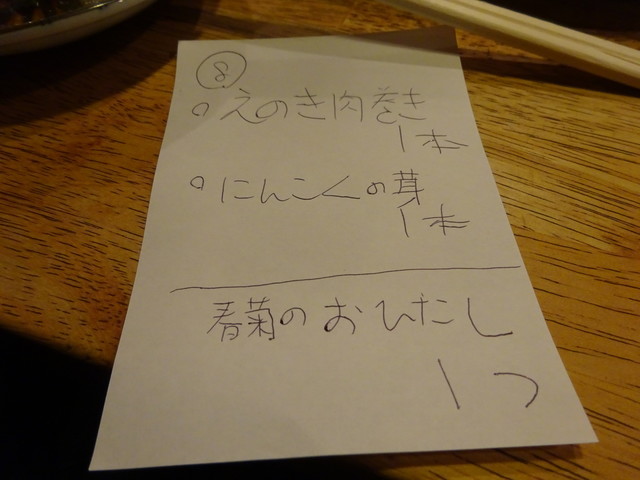 ⑧
○えのき肉巻き
1本
○にんにくの芽
1本
春菊のおひたし
1つ